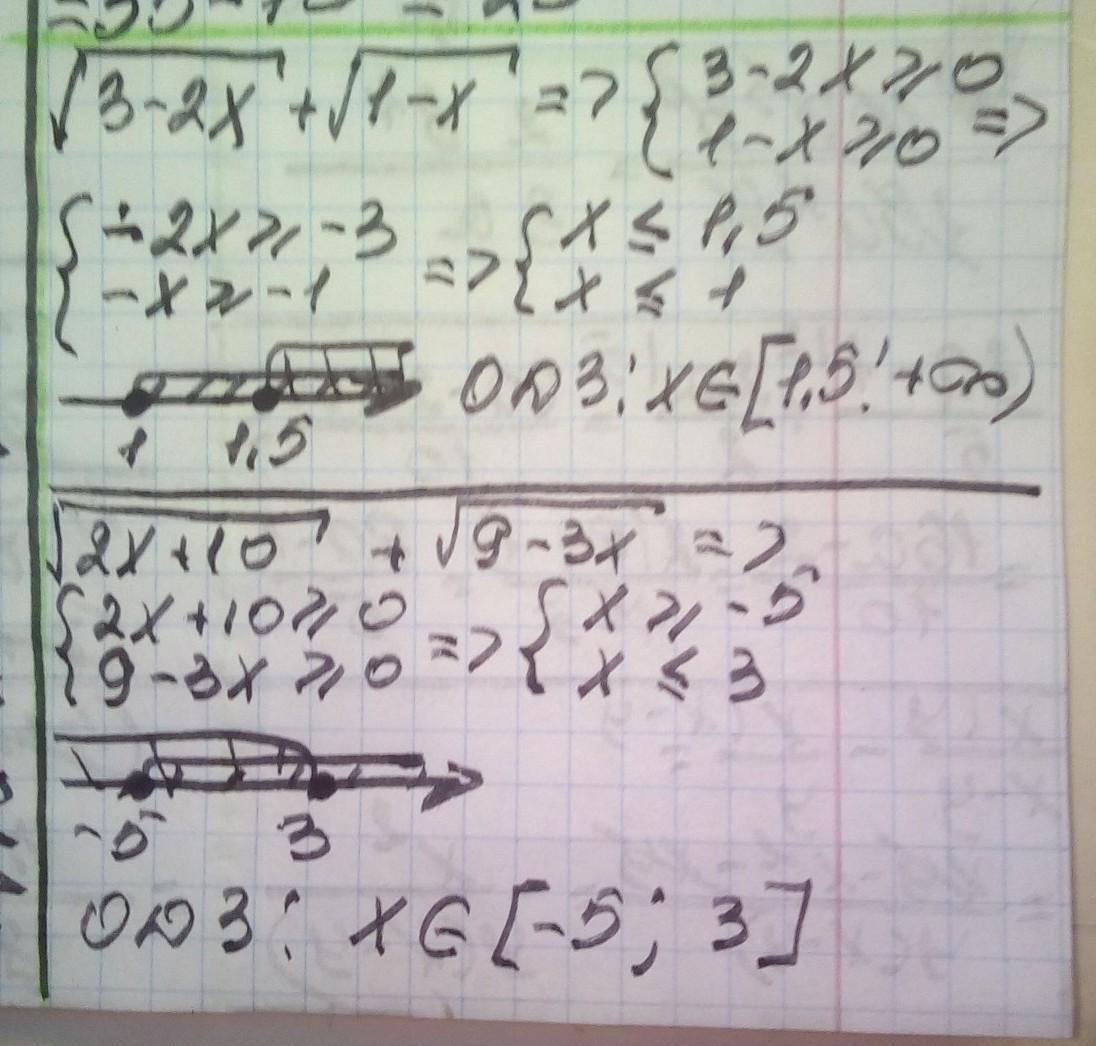 √3-2x + √1-x => { 3-2x ≥ 0
1-x ≥ 0 =>
{ -2x ≥ -3
-x ≥ -1 => { x ≤ 1,5
x ≤ 1
1 1,5 ОДЗ: x ∈ [1,5; +∞)
√2x+10 + √9-3x =>
{ 2x+10 ≥ 0
9-3x ≥ 0 => { x ≥ -5
x ≤ 3
-5 3
ОДЗ: x ∈ [-5; 3]